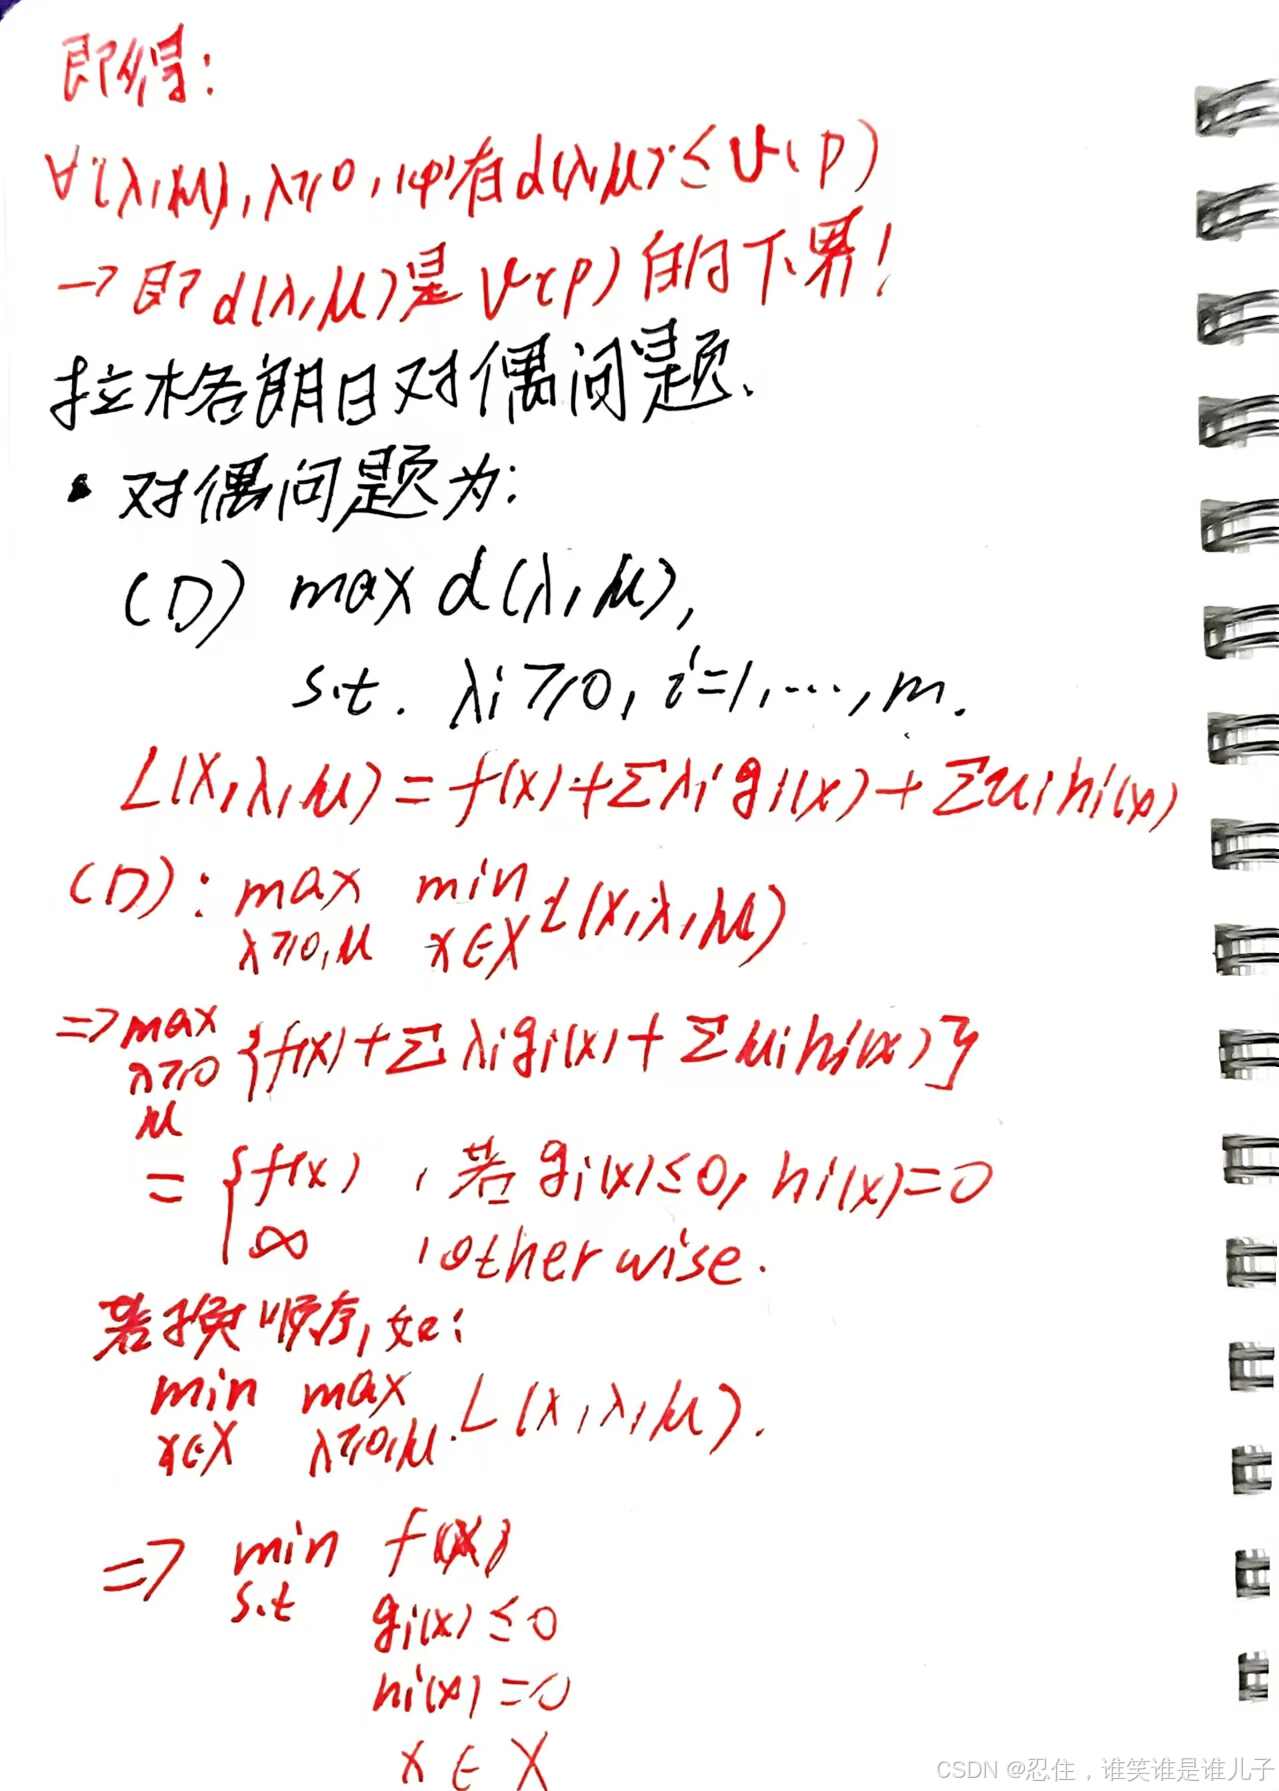 即得:
∀(λ,μ),λ≥0,均有d(λ,μ)≤v(p)
→即d(λ,μ)是v(p)的下界!
拉格朗日对偶问题.
• 对偶问题为:
(D) max d(λ,μ),
s.t. λi≥0, i=1,...,m.
L(x,λ,μ)=f(x)+Σλigi(x)+Σuihi(x)
(D): max min L(x,λ,μ)
λ≥0,μ x∈X
⇒max {f(x)+Σλigi(x)+Σμihi(x)}
λ≥0
μ
= { f(x) ,若gi(x)≤0,hi(x)=0
∞ ,otherwise.
若换顺序,如:
min max L(x,λ,μ).
x∈X λ≥0,μ.
⇒ min f(x)
s.t gi(x)≤0
hi(x)=0
x∈X
CSDN @忍住,谁笑谁是谁儿子